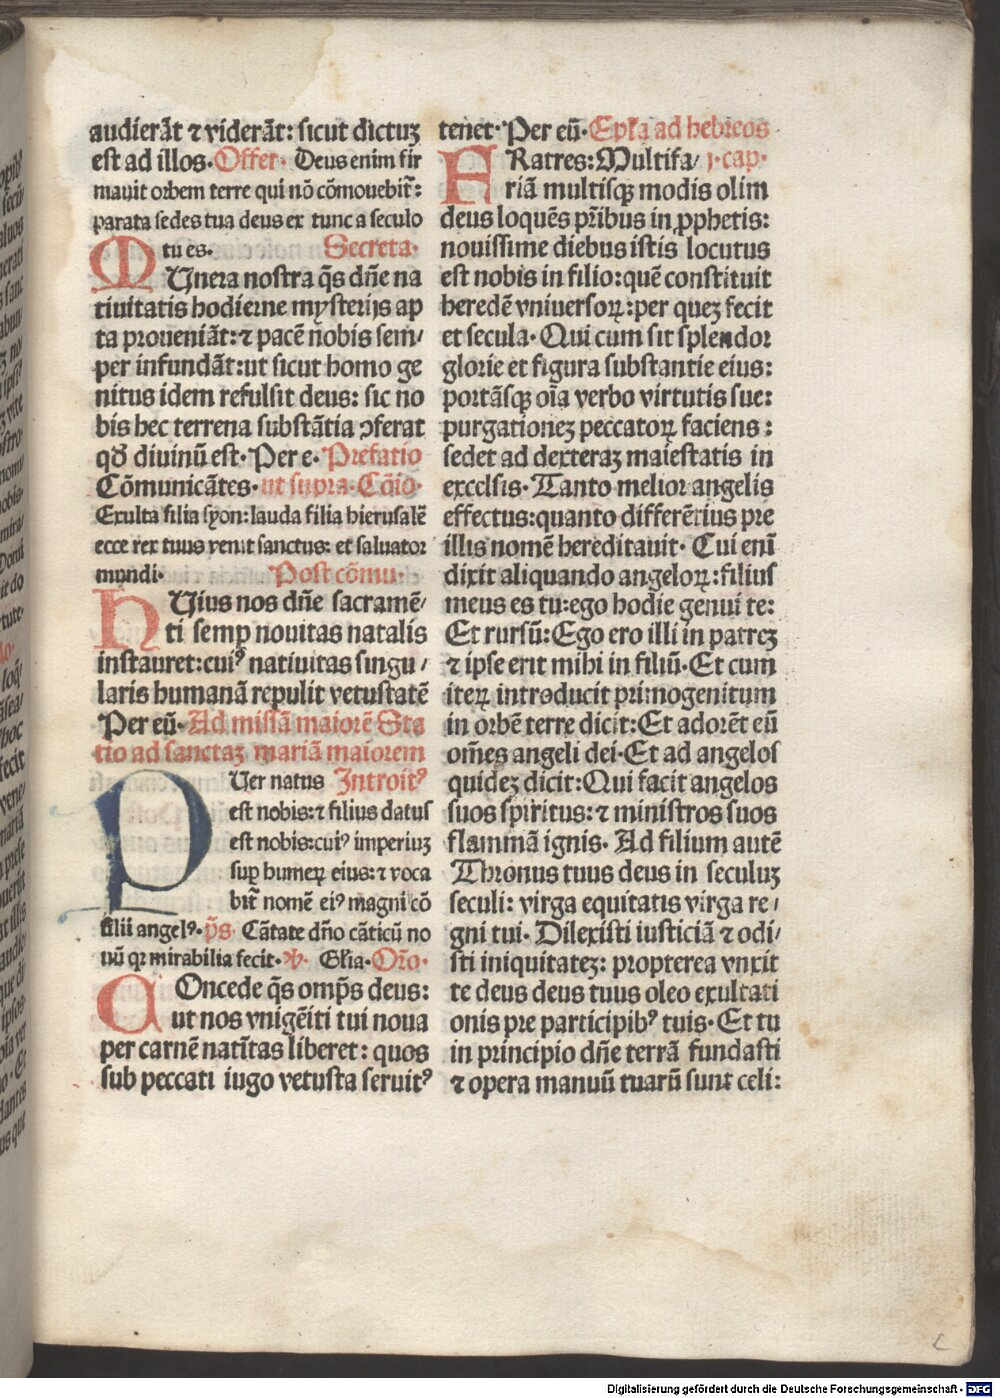 audierāt ⁊ viderāt: sicut dictuꝫ
est ad illos. Offer. Deus enim fir
mauit orbem terre qui nō cōmouebit̄:
parata sedes tua deus ex tunc a seculo
tu es. Secreta.
MUnera nostra q̄s dn̄e na
tiuitatis hodierne mysterijs ap
ta proueniāt: ⁊ pacē nobis sem/
per infundāt: ut sicut homo ge
nitus idem refulsit deus: sic no
bis hec terrena substātia ꝯferat
qđ diuinū est. Per e. Prefatio
Cōmunicātes. ut supra. Cōio.
Exulta filia syon: lauda filia hierusalē
ecce rex tuus venit sanctus: et saluator
mundi. Post cōmu.
hUius nos dn̄e sacramē/
ti semꝑ nouitas natalis
instauret: cuiꝰ natiuitas singu/
laris humanā repulit vetustatē
Per eū. Ad missā maiorē Sta
tio ad sanctaꝫ mariā maiorem
PUer natus Introitꝰ
est nobis: ⁊ filius datus
est nobis: cuiꝰ imperiuꝫ
suꝑ humeꝝ eius: ⁊ voca
bit̄ nomē eiꝰ magni cō
silii angelꝰ. p̄s. Cātate dn̄o cāticū no
uū qꝛ mirabilia fecit. ℣. Gl̄ia. Oro.
COncede q̄s omp̄s deus:
ut nos vnigēiti tui noua
per carnē natītas liberet: quos
sub peccati iugo vetusta seruitꝰ
tenet. Per eū. Ep̄la ad hebreos
FRatres: Multifa/ j. cap.
riā multisqꝫ modis olim
deus loquēs pr̄ibus in ꝓphetis:
nouissime diebus istis locutus
est nobis in filio: quē constituit
heredē vniuersoꝝ: per queꝫ fecit
et secula. Qui cum sit splendor
glorie et figura substantie eius:
portāsqꝫ oīa verbo virtutis sue:
purgationeꝫ peccatoꝝ faciens:
sedet ad dexteraꝫ maiestatis in
excelsis. Tanto melior angelis
effectus: quanto differētius pre
illis nomē hereditauit. Cui enī
dixit aliquando angeloꝝ: filius
meus es tu: ego hodie genui te:
Et rursū: Ego ero illi in patreꝫ
⁊ ipse erit mihi in filiū. Et cum
iteꝝ introducit primogenitum
in orbē terre dicit: Et adorēt eū
om̄es angeli dei. Et ad angelos
quideꝫ dicit: Qui facit angelos
suos spiritus: ⁊ ministros suos
flammā ignis. Ad filium autē
Thronus tuus deus in seculuꝫ
seculi: virga equitatis virga re/
gni tui. Dilexisti iusticiā ⁊ odi/
sti iniquitateꝫ: propterea vnxit
te deus deus tuus oleo exultati
onis pre participibꝰ tuis. Et tu
in principio dn̄e terrā fundasti
⁊ opera manuū tuarū sunt celi:
Digitalisierung gefördert durch die Deutsche Forschungsgemeinschaft - DFG